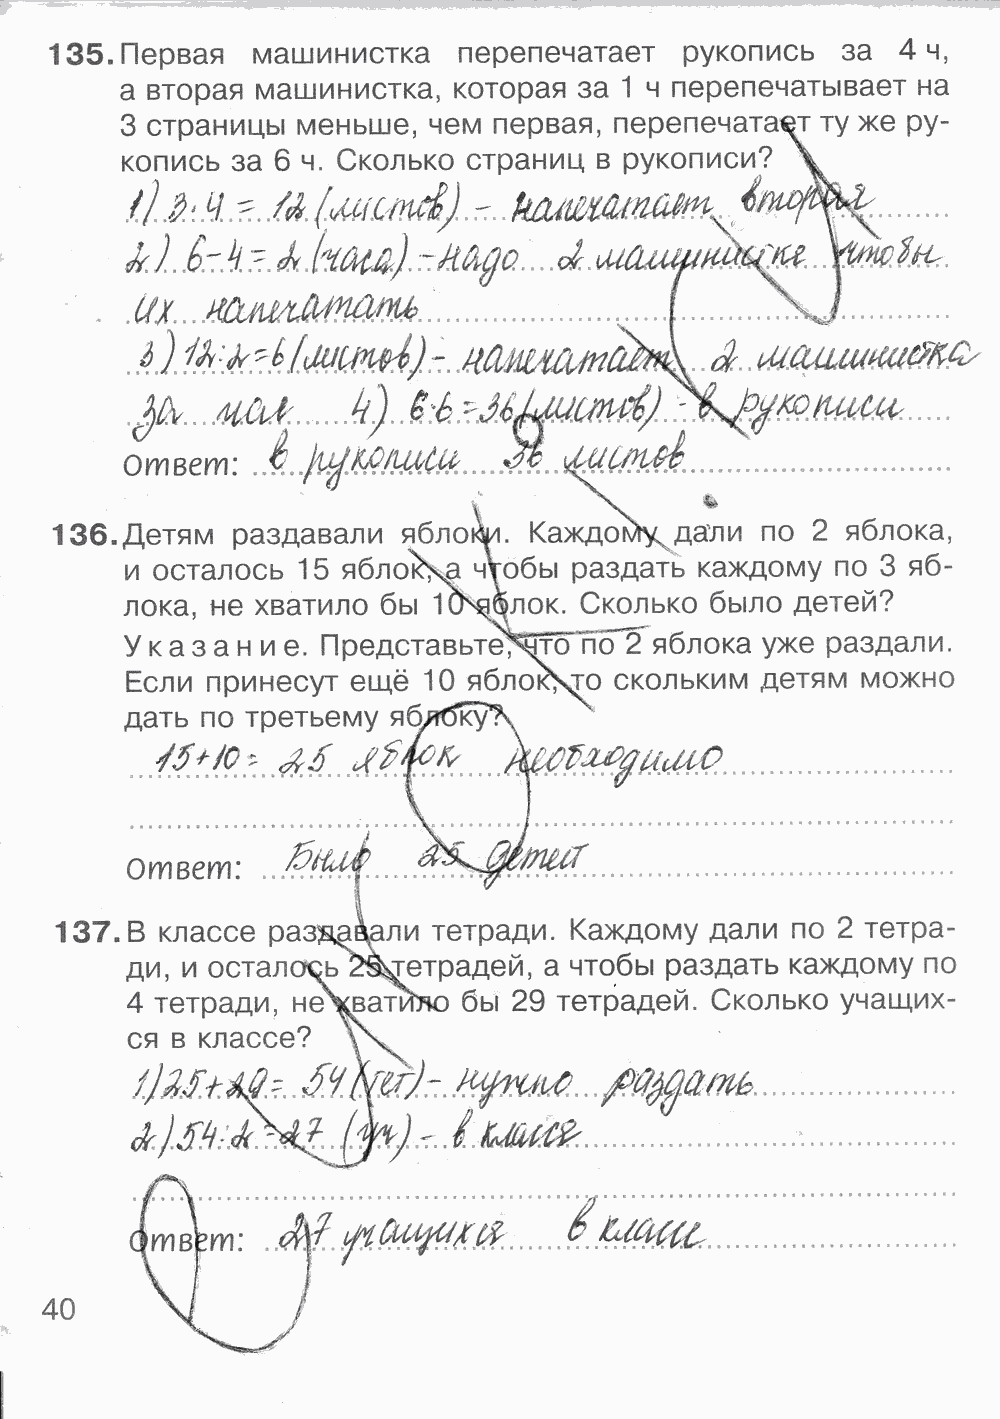 135. Первая машинистка перепечатает рукопись за 4 ч,
а вторая машинистка, которая за 1 ч перепечатывает на
3 страницы меньше, чем первая, перепечатает ту же ру-
копись за 6 ч. Сколько страниц в рукописи?
1) 3·4 = 12 (листов) - напечатает вторая
2) 6-4=2 (часа) - надо 2 машинистке чтобы
их напечатать
3) 12:2=6 (листов) - напечатает 2 машинистка
за час 4) 6·6=36 (листов) - в рукописи
Ответ: в рукописи 36 листов
136. Детям раздавали яблоки. Каждому дали по 2 яблока,
и осталось 15 яблок, а чтобы раздать каждому по 3 яб-
лока, не хватило бы 10 яблок. Сколько было детей?
Указание. Представьте, что по 2 яблока уже раздали.
Если принесут ещё 10 яблок, то скольким детям можно
дать по третьему яблоку?
15+10= 25 яблок необходимо
Ответ: Было 25 детей
137. В классе раздавали тетради. Каждому дали по 2 тетра-
ди, и осталось 25 тетрадей, а чтобы раздать каждому по
4 тетради, не хватило бы 29 тетрадей. Сколько учащих-
ся в классе?
1) 25+29= 54 (тет) - нужно раздать
2) 54:2=27 (уч) - в классе
Ответ: 27 учащихся в классе
40